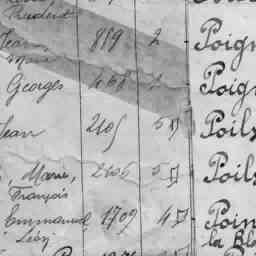 Prudent
Jean 819 2 Poign
Marie
Georges 448 2 Poign
Jean 2105 5 Poils
, Marie, 2106 5 Poils
François
Emmanuel 1709 4 Poin
Léon la Bl